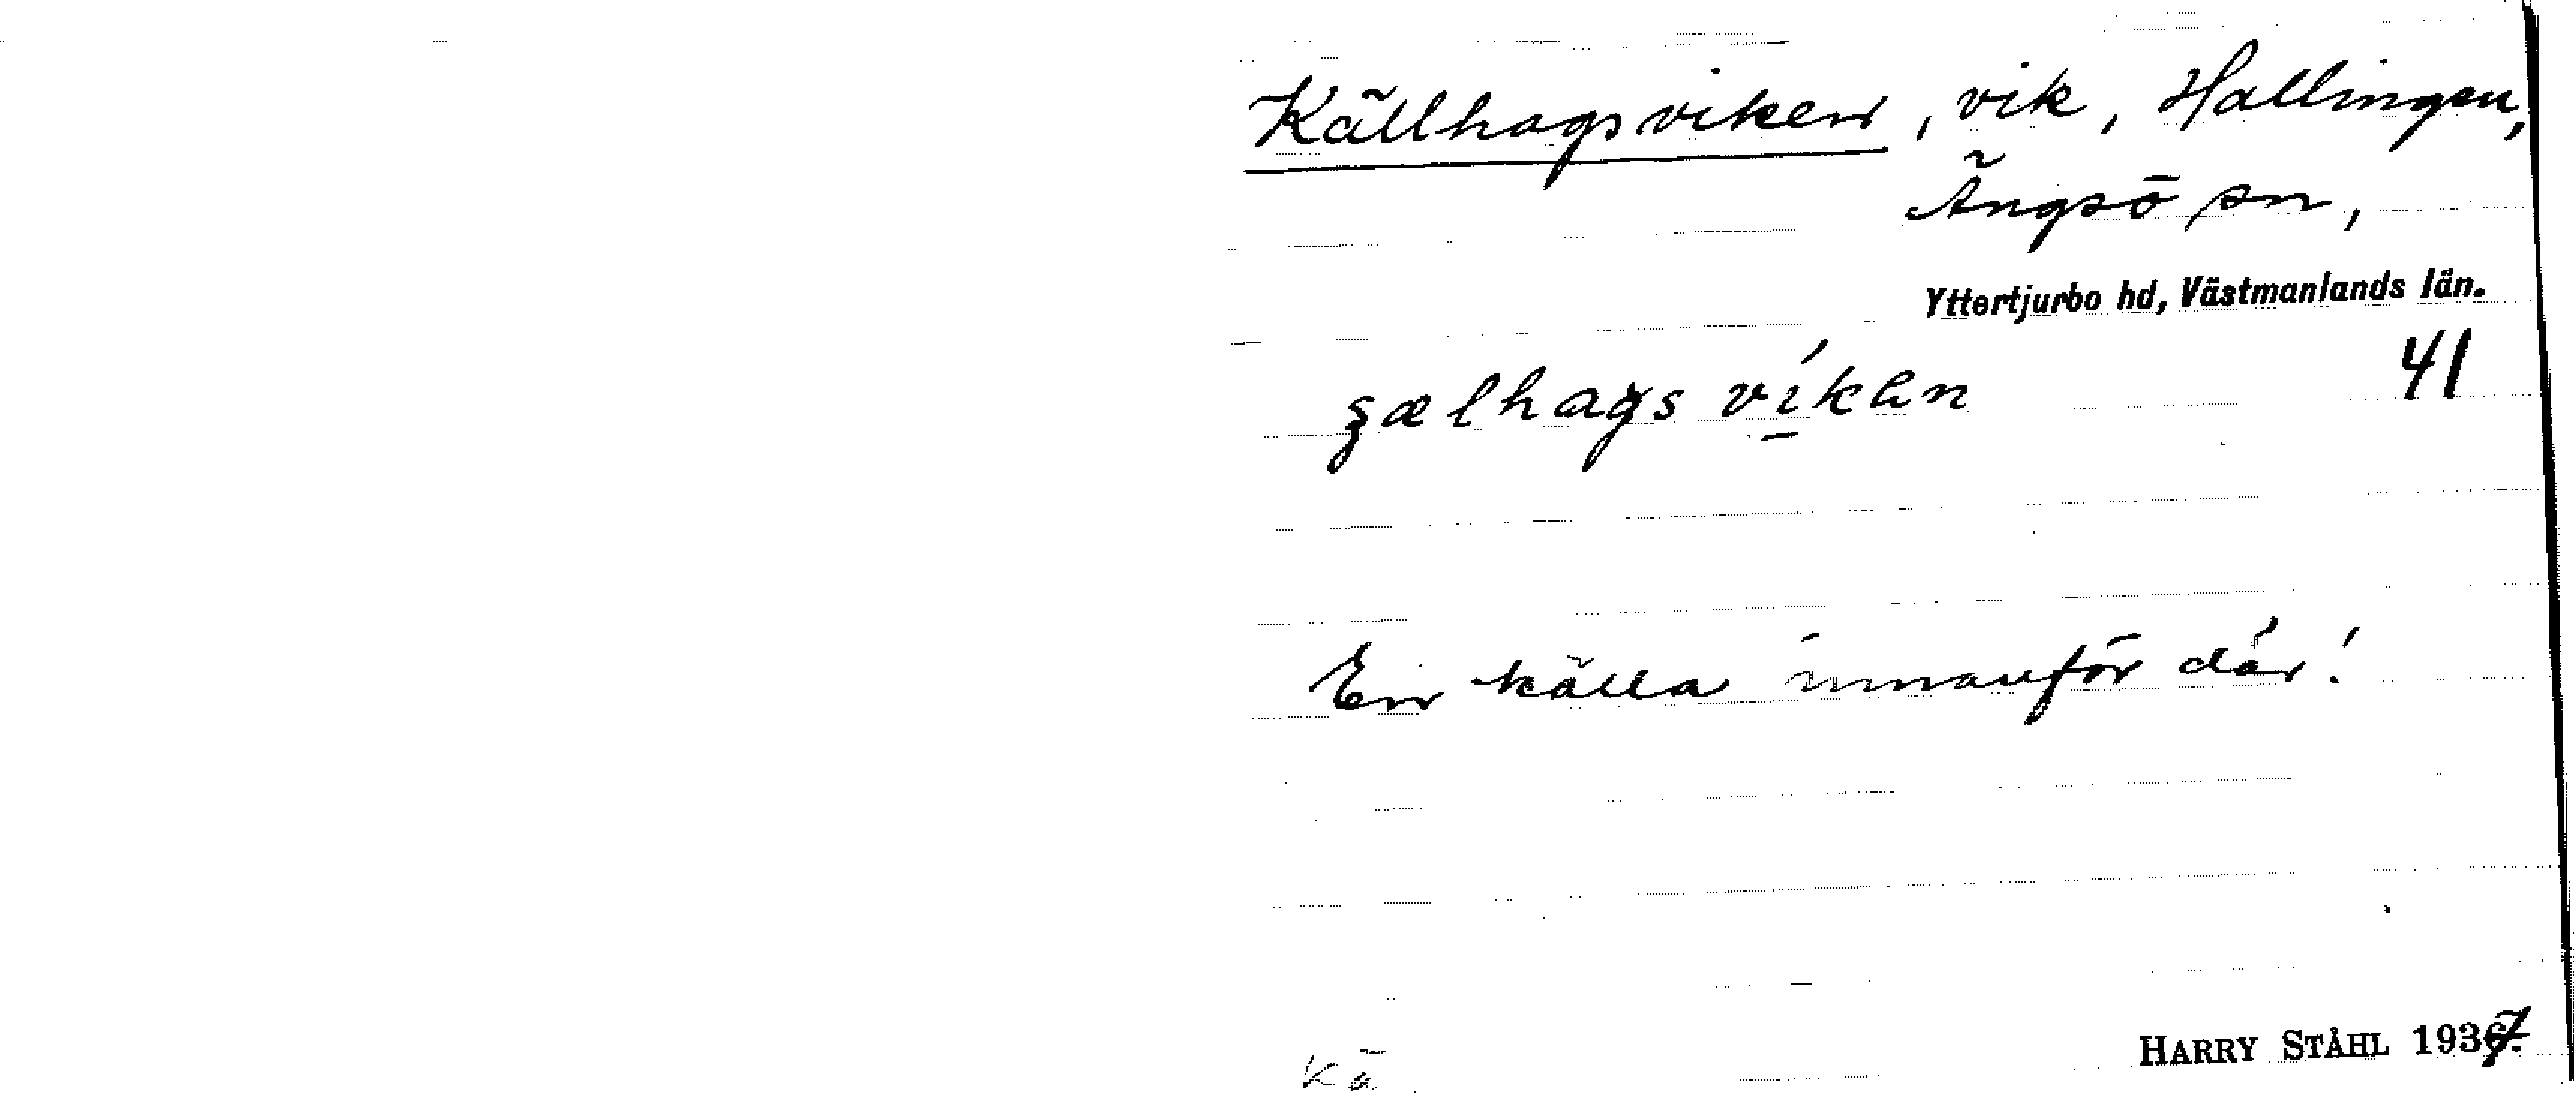 Källhagsviken, vik, Hallingen,
Ängsö sn,
Yttertjurbo hd, Västmanlands län.
41
ȿælhags víkən
En källa innanför där!
Kä
HARRY STÅHL 1937.